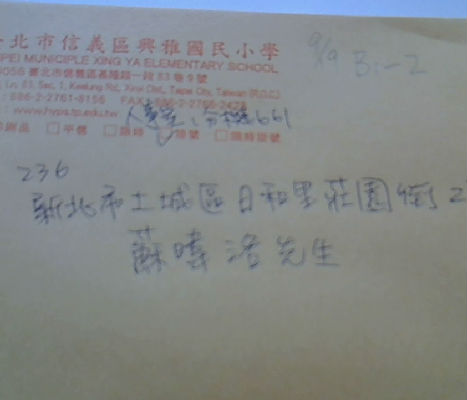 北市信義區興雅國民小學
PEI MUNICIPLE XING YA ELEMENTARY SCHOOL
臺北市信義區基隆路一段83巷9號
Ln. 83, Sec. 1, Keelung Rd., Xinyi Dist., Taipei City, Taiwan (R.O.C.)
886-2-2761-8156 FAX:886-2-2766-2423
www.hyps.tp.edu.tw
人事室、分機661
□平信 □限時 掛號 □限時掛號
9/9
236
新北市土城區日和里莊園街2
蘇暐洛先生